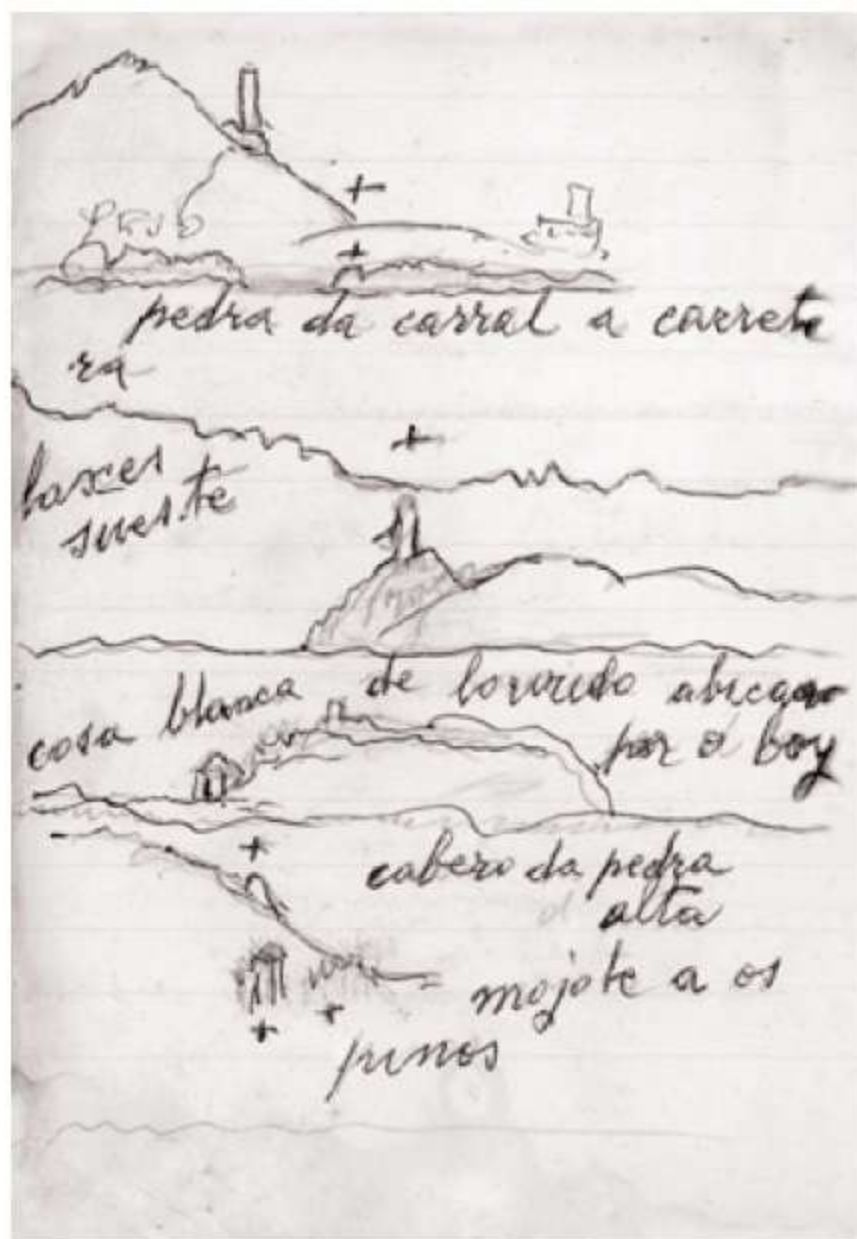 pedra da carral a carrete
ra
laxes
sueste
cosa blanca de louruido
por o boy
cabero da pedra
alta
mojote a os
pinos